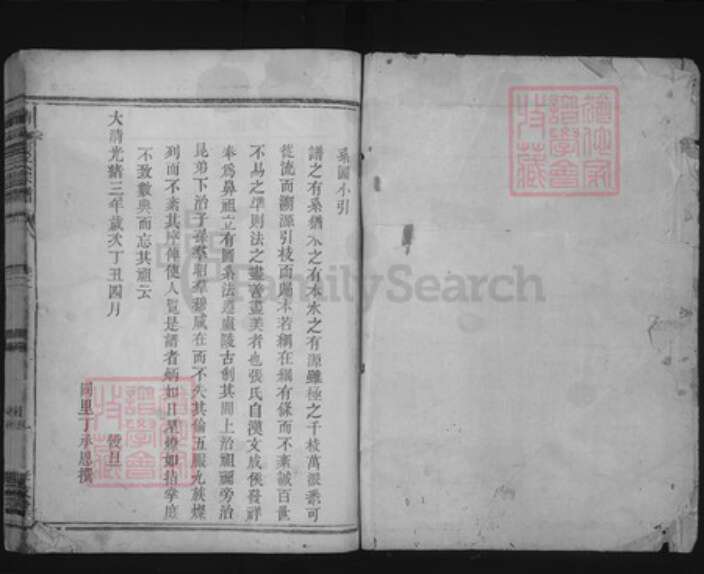 系圖小引
譜之有系猶水之有本水之有源雖極之千枝萬派悉可
從流而溯源引枝而歸本若網在綱有條而不紊誠百世
不易之準則法之盡善盡美者也張氏自漢文成侯發祥
奉為鼻祖立有圖系法遵廬陵古制其間上治祖禰旁治
昆弟下治子孫羣昭羣穆咸在而不失其倫五服九族燦
列而不紊其序俾使人覧是譜者炳如日星瞭如指掌庶
不致數典而忘其祖云
大清光緒三年歲次丁丑四月 穀旦
同里丁承恩撰
譜學會
藏
FamilySearch